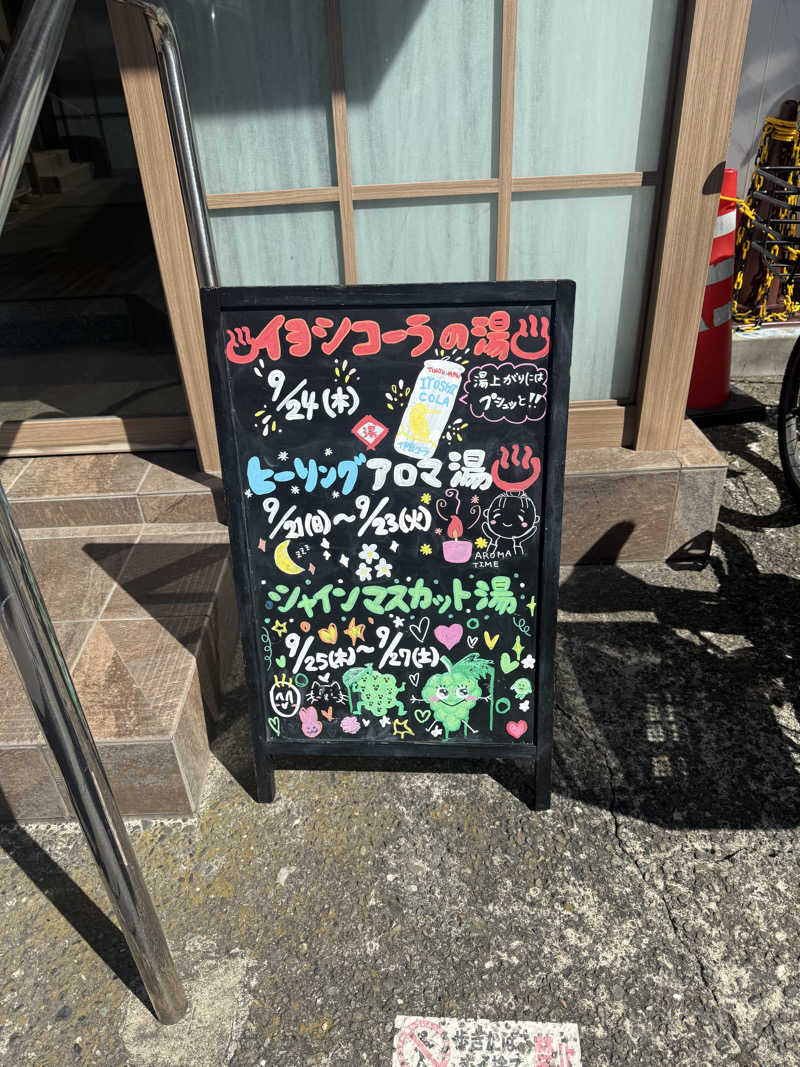 イヨシコーラの湯
9/24(水)
湯
IYOSHI
COLA
湯上がりには
プシュッと!!
ヒーリングアロマ湯
9/21(日)~9/23(火)
zzz
AROMA
TIME
シャインマスカット湯
9/25(木)~9/27(土)